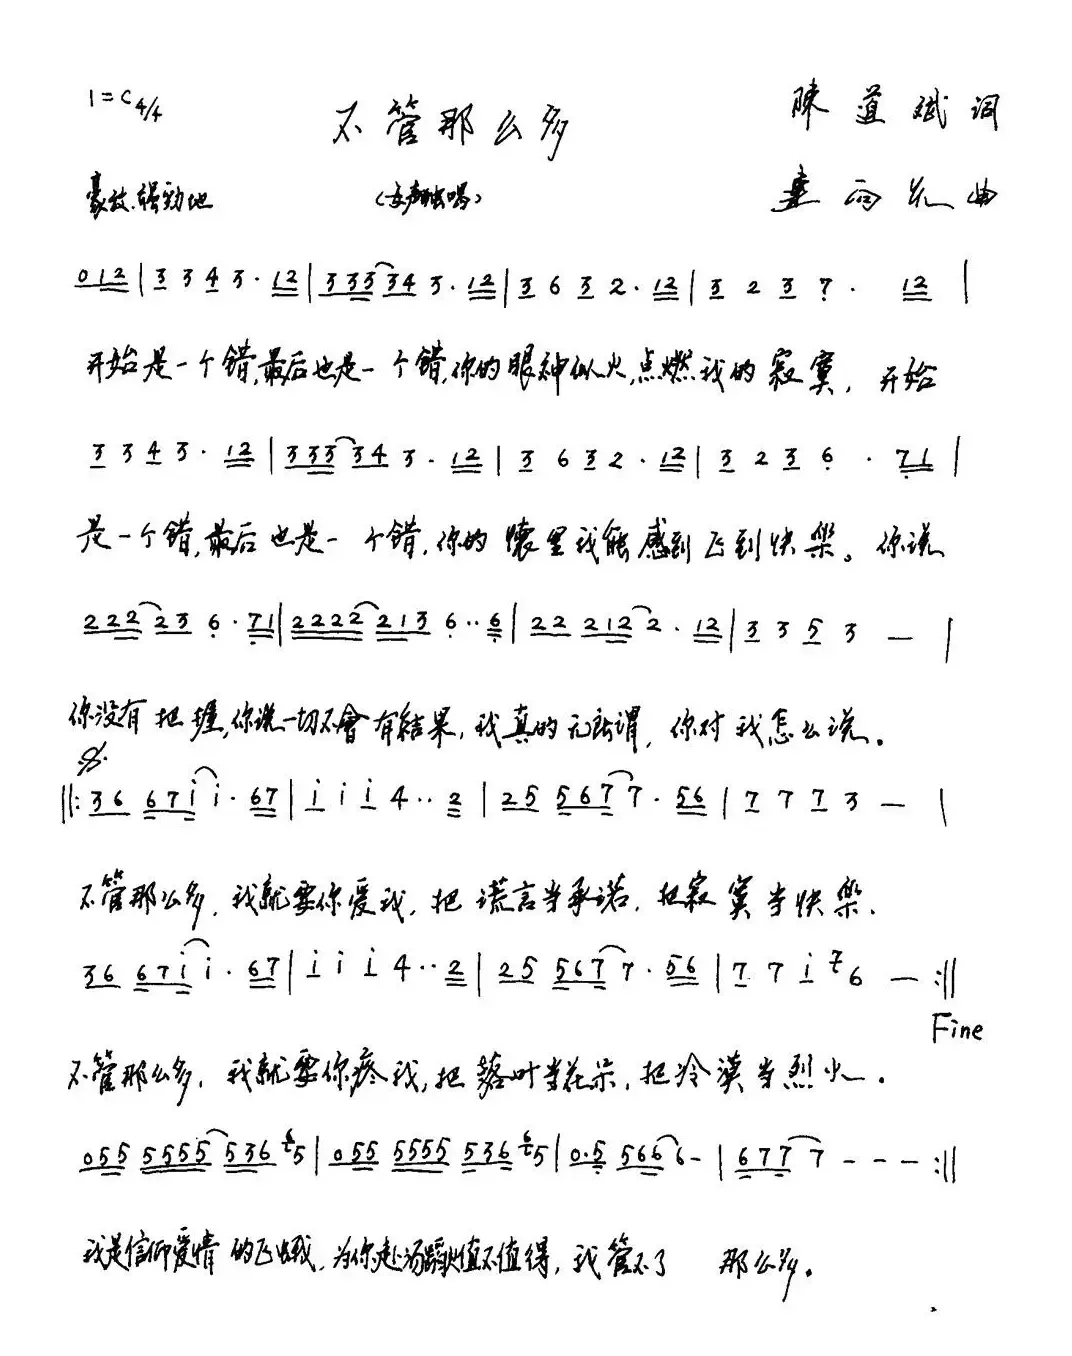 1=C 4/4
不管那么多
陳道斌词
豪放、强劲地
(女声独唱)
向先曲
0 1 2 | 3 3 4 3 · 1 2 | 3 3 3 3 4 3 · 1 2 | 3 6 3 2 · 1 2 | 3 2 3 7 · 1 2 |
开始是一个错,最后也是一个错,你的眼神似火,点燃我的寂寞,开始
3 3 4 3 · 1 2 | 3 3 3 3 4 3 · 1 2 | 3 6 3 2 · 1 2 | 3 2 3 6 · 7 1 |
是一个错,最后也是一个错,你的怀里我能感到飞到快樂。你说
2 2 2 2 3 6 · 7 1 | 2 2 2 2 2 1 3 6 · · 6 | 2 2 2 1 2 2 · 1 2 | 3 3 5 3 — |
你没有把握,你说一切不會有结果,我真的无所谓,你对我怎么说。
𝄋
||: 3 6 6 7 i i · 6 7 | i i i 4 · · 2 | 2 5 5 6 7 7 · 5 6 | 7 7 7 3 — |
不管那么多,我就要你爱我,把谎言当承诺,把寂寞当快樂,
3 6 6 7 i i · 6 7 | i i i 4 · · 2 | 2 5 5 6 7 7 · 5 6 | 7 7 i 7 6 — :||
Fine
不管那么多,我就要你疼我,把落叶当花朵,把冷漠当烈火。
0 5 5 5 5 5 5 5 3 6 6 5 | 0 5 5 5 5 5 5 5 3 6 6 5 | 0 · 5 5 6 6 6 - | 6 7 7 7 - - - :||
我是信仰爱情的飞蛾,为你赴汤蹈火值不值得,我管不了 那么多。